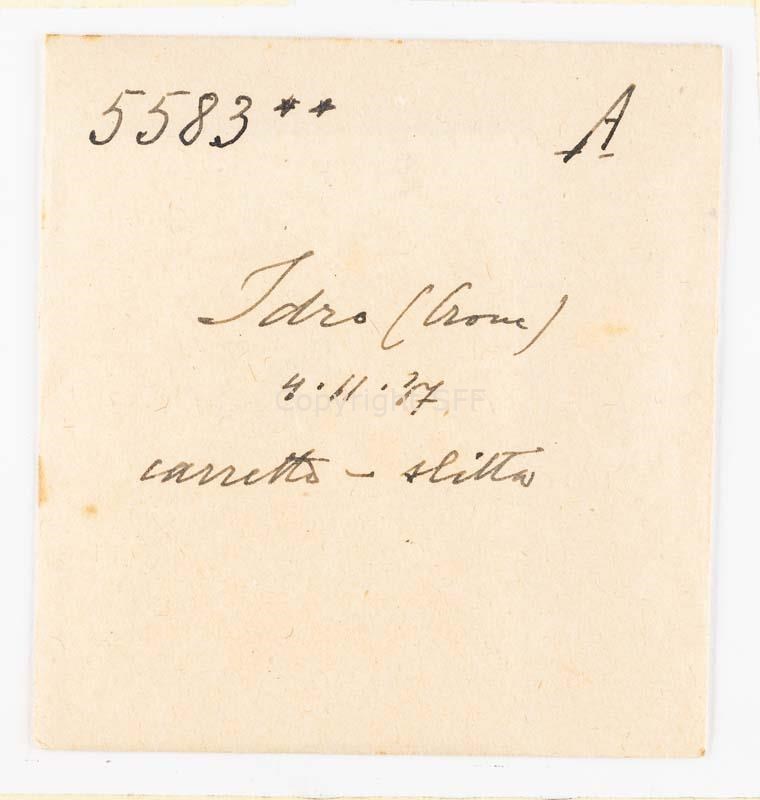 5583** A
Idro (Crone)
4.11.'37
Copyright SFF
carretto - slitta